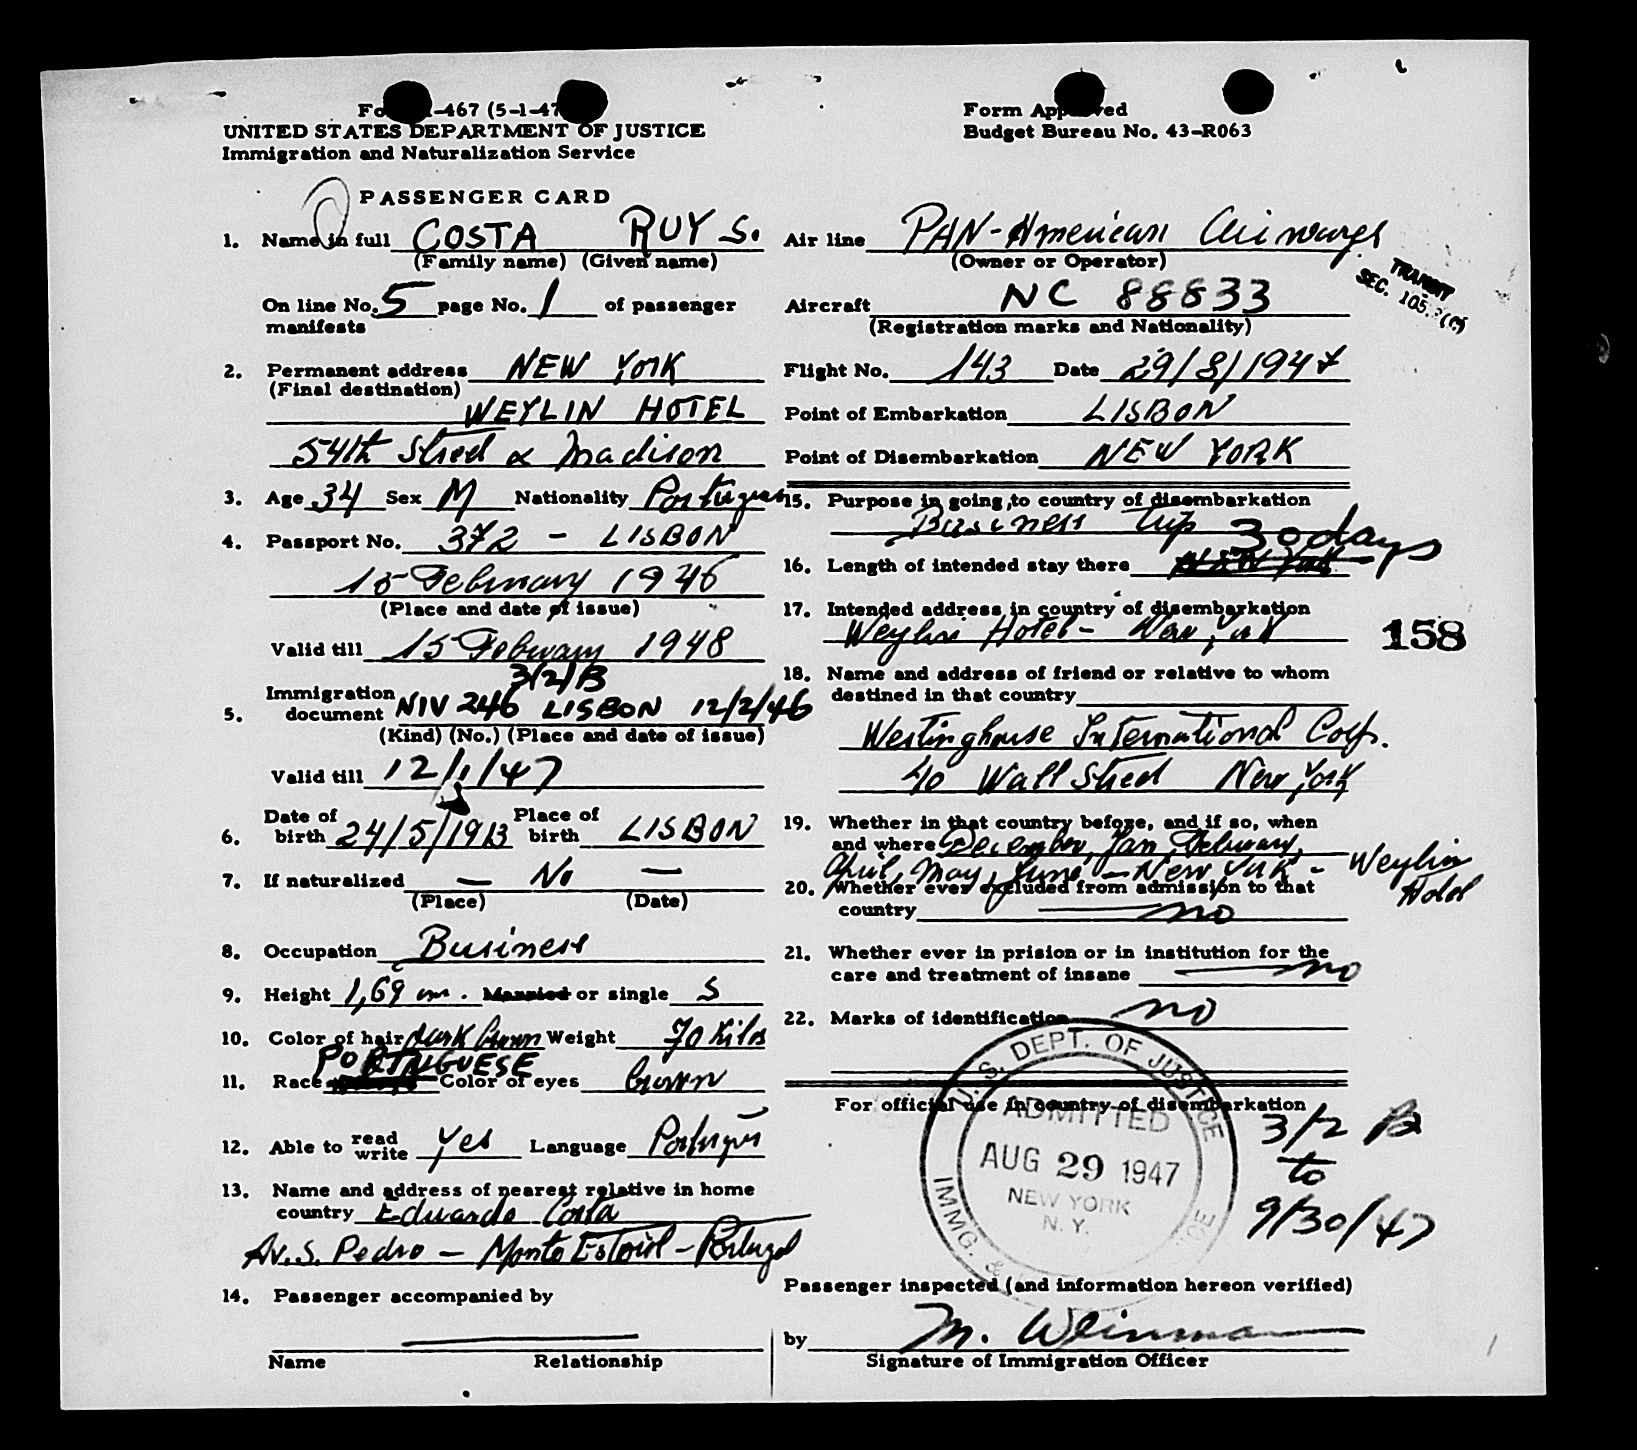 Fo -467 (5-1-47
UNITED STATES DEPARTMENT OF JUSTICE
Immigration and Naturalization Service
PASSENGER CARD
1. Name in full COSTA RUY S.
(Family name) (Given name)
On line No. 5 page No. 1 of passenger
manifests
2. Permanent address NEW YORK
(Final destination)
WEYLIN HOTEL
54th Street & Madison
3. Age 34 Sex M Nationality Portuguese
4. Passport No. 372 - LISBON
15 February 1946
(Place and date of issue)
Valid till 15 February 1948
3(2)B
Immigration
5. document NIV 246 LISBON 12/2/46
(Kind) (No.) (Place and date of issue)
Valid till 12/1/47
6. Date of birth 24/5/1913 Place of birth LISBON
7. If naturalized — No —
(Place) (Date)
8. Occupation Business
9. Height 1,69 cm. Married or single S
10. Color of hair dark brown Weight 70 Kilos
PORTUGUESE
11. Race Color of eyes brown
12. Able to read write yes Language Português
13. Name and address of nearest relative in home
country Eduardo Costa
Av. S. Pedro - Monte Estoril - Portugal
14. Passenger accompanied by
Name Relationship
Form Approved
Budget Bureau No. 43-R063
Air line PAN-American Airways
(Owner or Operator)
TRANSIT
SEC. 105. (c)
Aircraft NC 88833
(Registration marks and Nationality)
Flight No. 143 Date 29/8/1947
Point of Embarkation LISBON
Point of Disembarkation NEW YORK
15. Purpose in going to country of disembarkation
Business trip
30 days
16. Length of intended stay there New York
17. Intended address in country of disembarkation
Weylin Hotel - New York
158
18. Name and address of friend or relative to whom
destined in that country
Westinghouse International Corp.
40 Wall Street New York
19. Whether in that country before, and if so, when
and where December, Jan, February,
April, May, June - New York - Weylin Hotel
20. Whether ever excluded from admission to that
country no
21. Whether ever in prision or in institution for the
care and treatment of insane no
22. Marks of identification no
For official use in country of disembarkation
U. S. DEPT. OF JUSTICE
ADMITTED
AUG 29 1947
NEW YORK
N. Y.
IMMG. &
3/2 B
to
9/30/47
Passenger inspected (and information hereon verified)
by M. Weinman
Signature of Immigration Officer